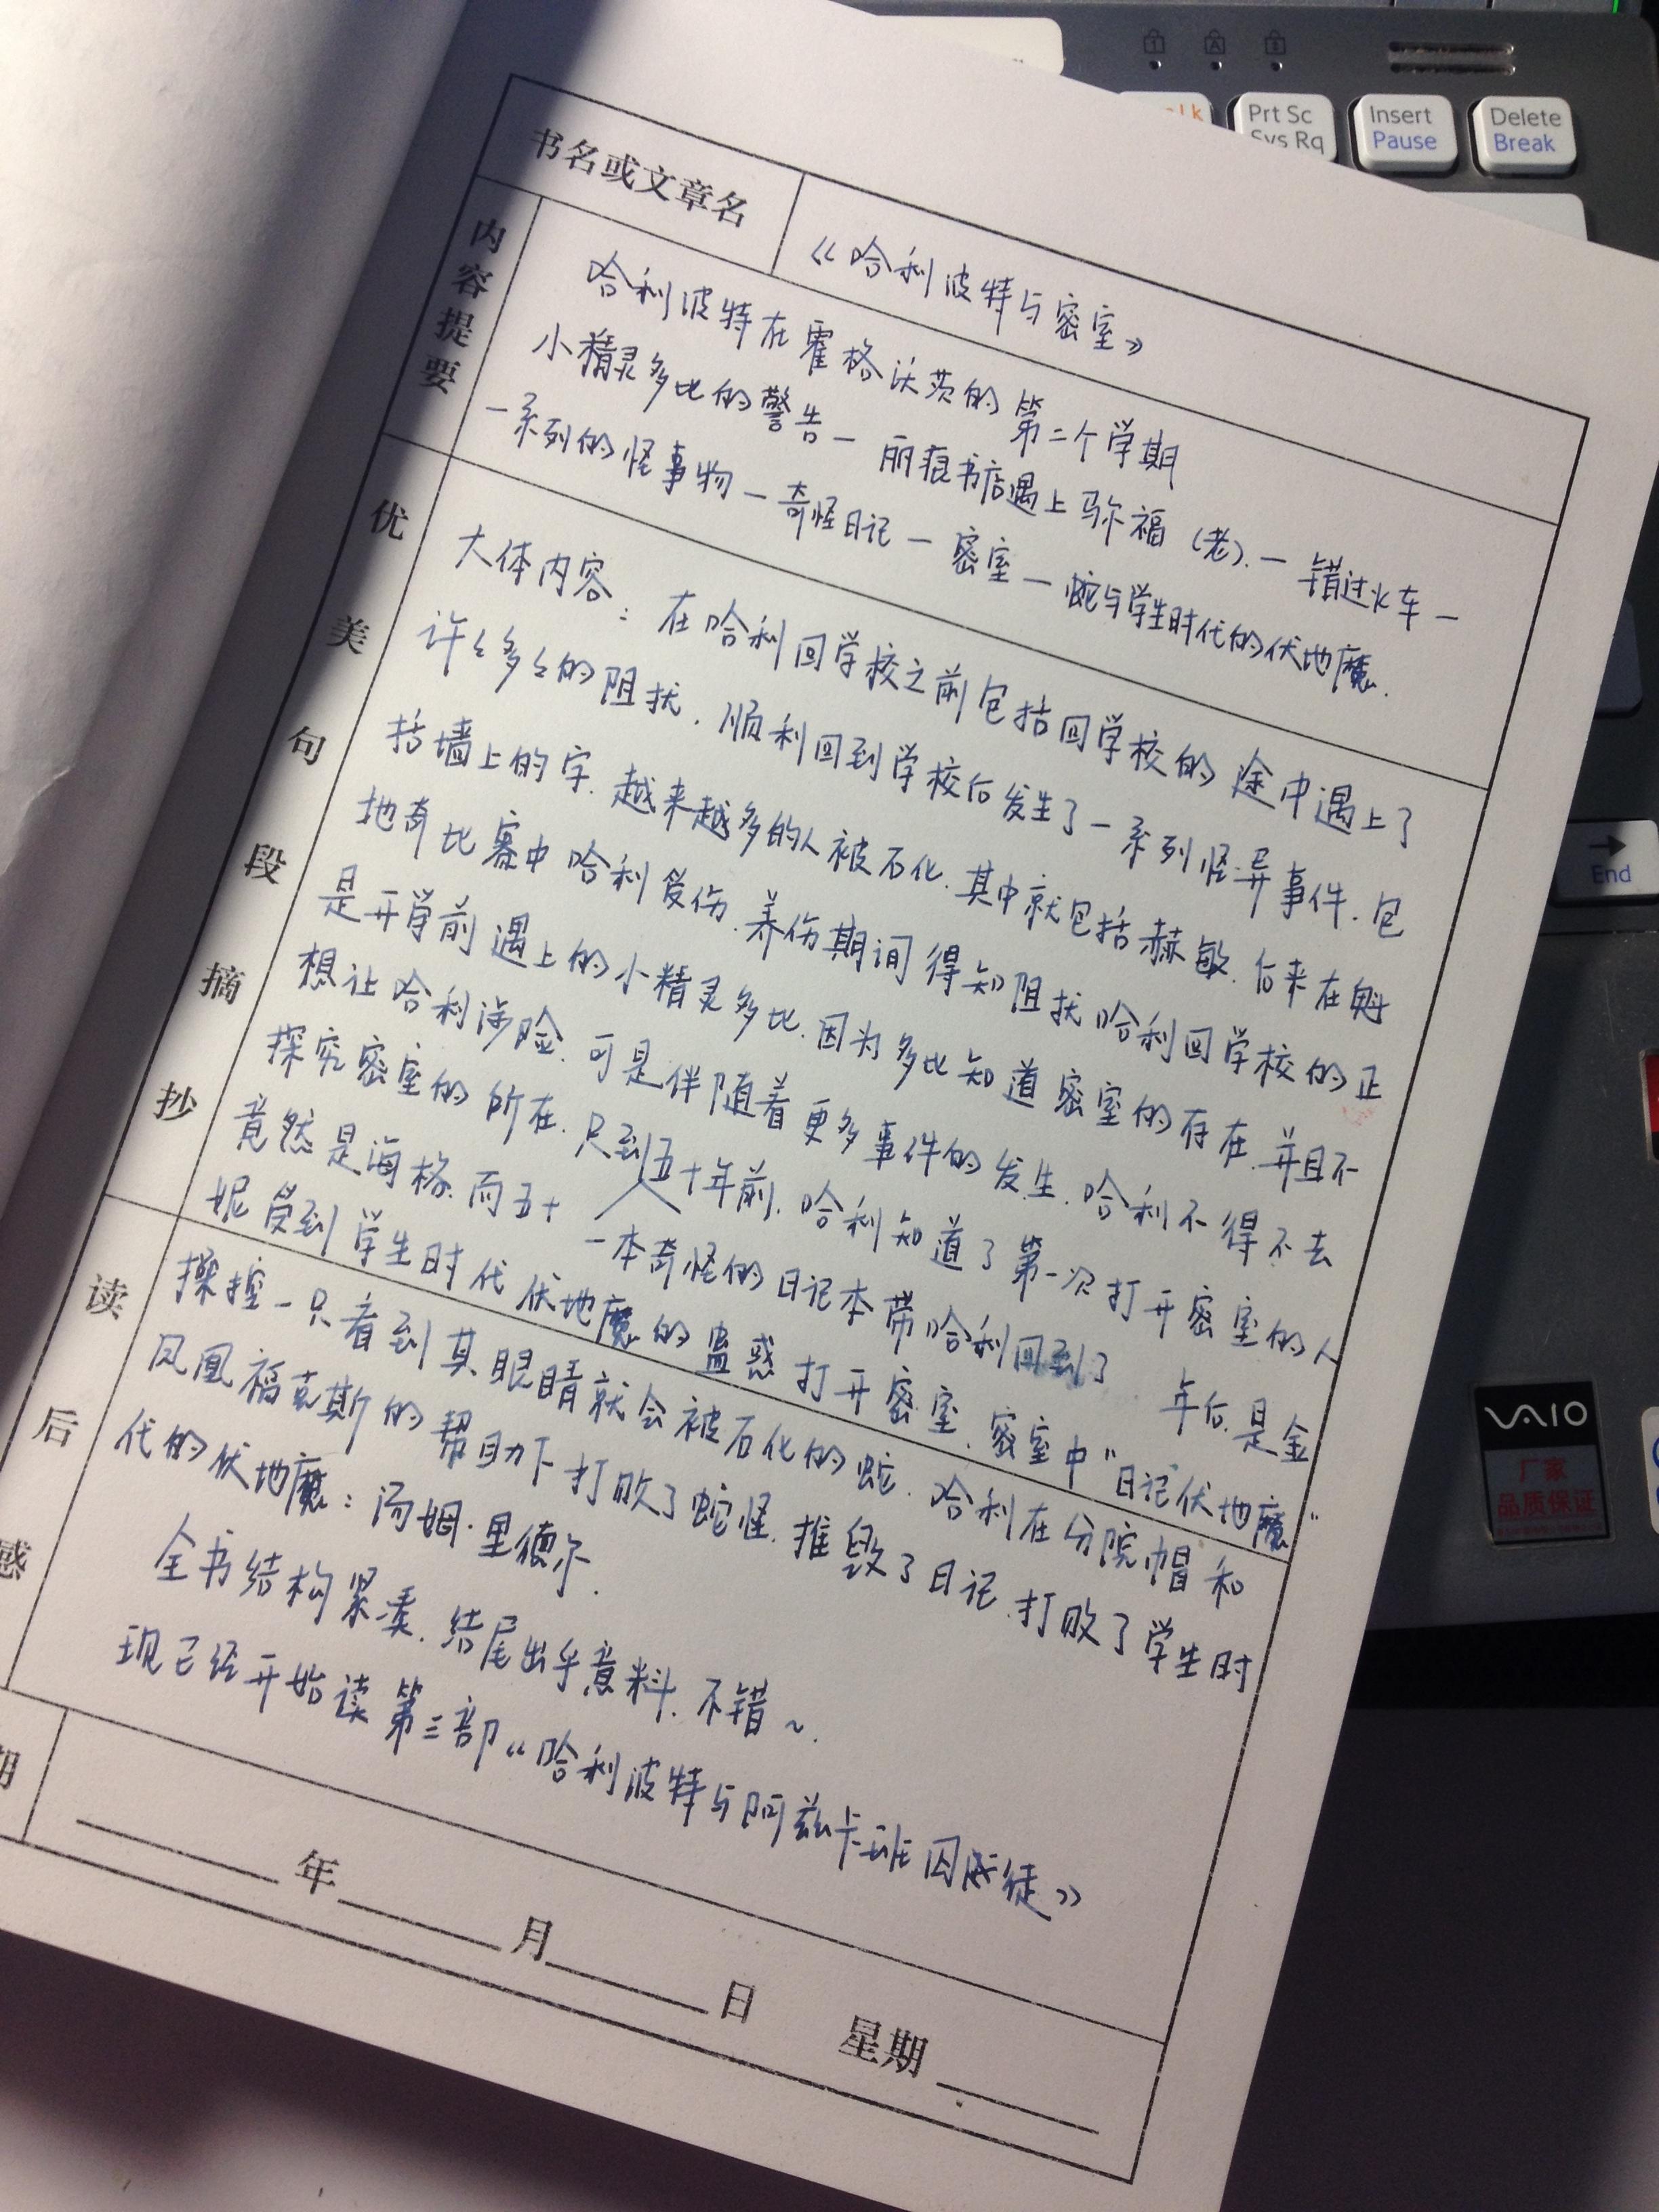 Prt Sc
Sys Rq
Insert
Pause
Delete
Break
书名或文章名
《哈利波特与密室》
内容提要
哈利波特在霍格沃茨的第二个学期
小精灵多比的警告—丽痕书店遇上马尔福(老).—错过火车—
一系列的怪事物—奇怪日记—密室—蛇与学生时代的伏地魔.
优美句段摘抄
大体内容:在哈利回学校之前包括回学校的途中遇上了
许々多々的阻扰.顺利回到学校后发生了一系列怪异事件.包
括墙上的字.越来越多的人被石化.其中就包括赫敏.后来在魁
地奇比赛中哈利受伤.养伤期间得知阻扰哈利回学校的正
是开学前遇上的小精灵多比.因为多比知道密室的存在.并且不
想让哈利涉险.可是伴随着更多事件的发生.哈利不得不去
探究密室的所在.只到一本奇怪的日记本带哈利回到了五十年前.哈利知道了第一次打开密室的人
竟然是海格.而五十年后.是金
妮受到学生时代伏地魔的蛊惑打开密室.密室中"日记伏地魔"
读后感
操控一只看到其眼睛就会被石化的蛇.哈利在分院帽和
凤凰福克斯的帮助下打败了蛇怪.摧毁了日记.打败了学生时
代的伏地魔:汤姆.里德尔.
全书结构紧凑.结尾出乎意料.不错~.
现已经开始读第三部《哈利波特与阿兹卡班囚徒》
期
年 月 日 星期
End
VAIO
厂家
品质保证